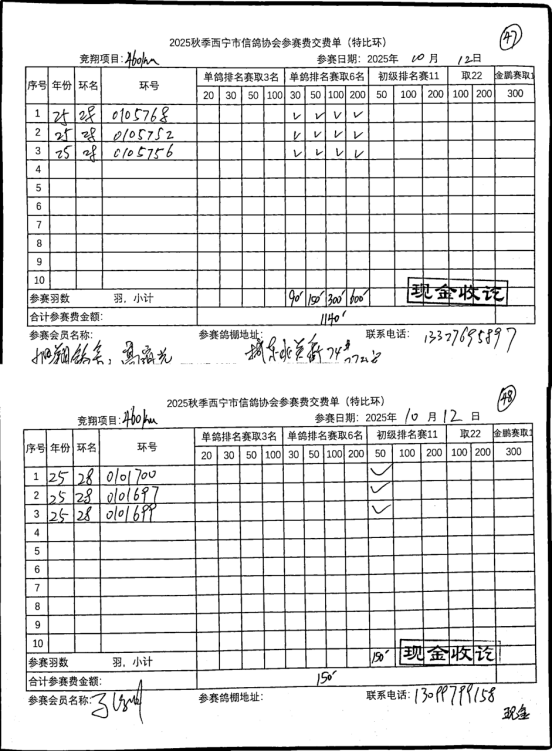 2025秋季西宁市信鸽协会参赛费交费单（特比环） 47
竞翔项目：460km 参赛日期：2025年 10 月 12日
序号 年份 环名 环号 单鸽排名赛取3名 单鸽排名赛取6名 初级排名赛11 取22 金鹏赛取1
20 30 50 100 30 50 100 200 50 100 200 100 200 300
1 25 28 0105768 ✓ ✓ ✓ ✓
2 25 28 0105752 ✓ ✓ ✓ ✓
3 25 28 0105756 ✓ ✓ ✓ ✓
4
5
6
7
8
9
10
参赛羽数 羽，小计 90 150 300 600 现金收讫
合计参赛费金额： 1140
参赛会员名称： 参赛鸽棚地址： 联系电话：13327695897
2025秋季西宁市信鸽协会参赛费交费单（特比环） 48
竞翔项目：460km 参赛日期：2025年 10 月 12 日
序号 年份 环名 环号 单鸽排名赛取3名 单鸽排名赛取6名 初级排名赛11 取22 金鹏赛取1
20 30 50 100 30 50 100 200 50 100 200 100 200 300
1 25 28 0101700 ✓
2 25 28 0101697 ✓
3 25 28 0101699 ✓
4
5
6
7
8
9
10
参赛羽数 羽，小计 150 现金收讫
合计参赛费金额： 150
参赛会员名称： 参赛鸽棚地址： 联系电话：13099799158
现金